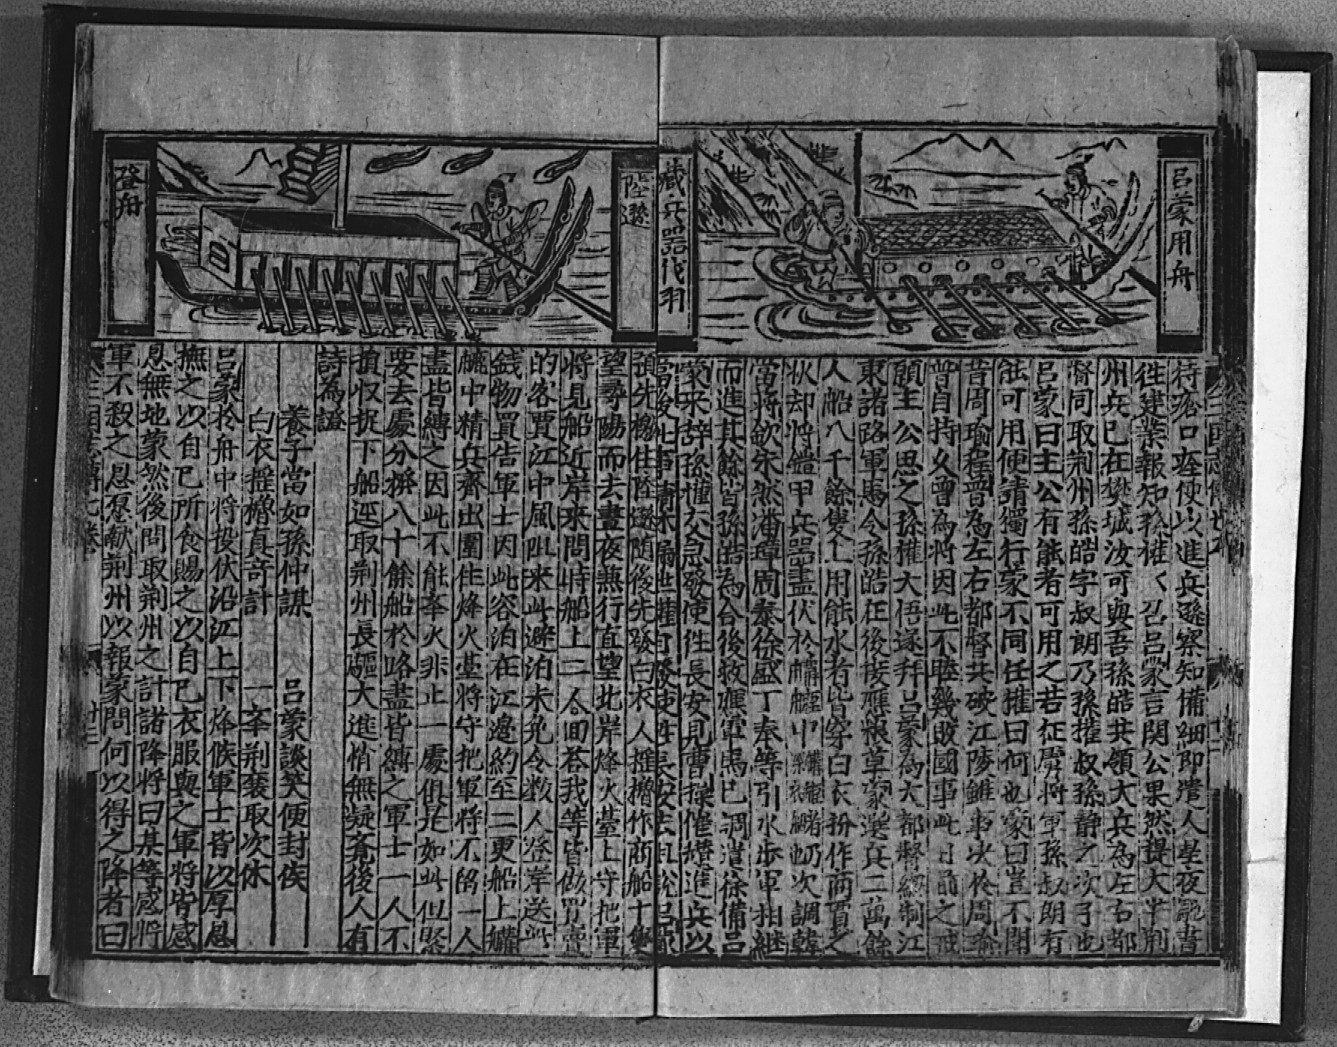 呂蒙用舟
藏兵器伐羽
待瘡口痊使以進兵遜察知備細即遣人星夜馳書
徃建業報知孫權〻召呂蒙言関公果然提大半荆
州兵已在樊城汝可與吾孫皓共領大兵為左右都
督同取荆州孫皓字叔朗乃孫權叔孫静之次子也
呂蒙曰主公有能者可用之若征虜將軍孫叔朗有
能可用便請獨行蒙不同任權曰何也蒙曰豈不聞
昔周瑜程普為左右都督共破江陵雖事决於周瑜
普自持久曾為將因此不睦幾敗國事此目前之戒
願主公思之孫權大悟遂拜呂蒙為大都督總制江
東諸路軍馬令孫皓在後接應粮草蒙選兵二萬餘
人船八千餘隻凢用能水者皆穿白衣扮作商賈之
狀却將鎧甲兵噐盡伏於中也次調韓
當將欽朱然潘璋周泰徐盛丁奉等引水歩軍相継
而進其餘皆孫皓為合後救應軍馬已調遣徐備呂
蒙來辞孫權交急發使徃長安見曹操催趲進兵以
當後
預先穩住陸遜随後先發白衣人揺櫓作商船十隻
望尋陽而去晝夜熱行直望北岸烽火臺上守把軍
將見船近岸来問時船上三人回荅我等皆做買賣
的客賈江中風阻来此避泊未免令数人登岸送此
錢物買告軍士因此容泊在江邊約至二更船上
中精兵齊出圍住烽火臺將守把軍將不留一人
盡皆縛之因此不能舉火非止一處俱是如此但緊
要去處分撥八十餘船於路盡皆縛之軍士一人不
損収捉下船逕取荆州長驅大進悄無疑
後人有
詩為證
養子當如孫仲謀　呂蒙談笑便封侯
白衣揺櫓真竒計　一舉荆襄取次休
呂蒙於舟中將投伏沿江上下烽候軍士皆以厚恩
撫之以自己所食賜之以自己衣服與之軍將皆感
恩無地蒙然後問取荆州之計諸降將曰某等感將
軍不殺之恩愿献荆州以報蒙問何以得之降者曰
陸遜
登舟